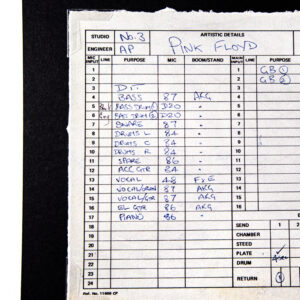 STUDIO No.3 ARTISTIC DETAILS
ENGINEER AP PINK FLOYD
MIC INPUT LINE PURPOSE MIC BOOM/STAND MAIN INPUT LINE PURPOSE
1 1 GB ①
2 2 GB ②
3 D.I 3
4 BASS 87 AKG 4
5 BASS DRUM D20 " 5
6 BASS DRUM D20 " 6
7 SNARE 87 " 7
8 DRUMS L 84 " 8
9 DRUMS C 84 " 9
10 DRUMS R 84 " 10
11 SPARE 86 " 11
12 ACC GTR 84 " 12
13 VOCAL 48 13
14 VOCAL/ 87 AKG 14
15 VOCAL/GTR 87 AKG 15
16 EL GTR 86 AKG 16
17 PIANO 86 "
18
19 SEND 1 2
20 CHAMBER
21 STEED
22 PLATE ✓
23 DRUM
24 RETURN
Ref. No. 11469 CP